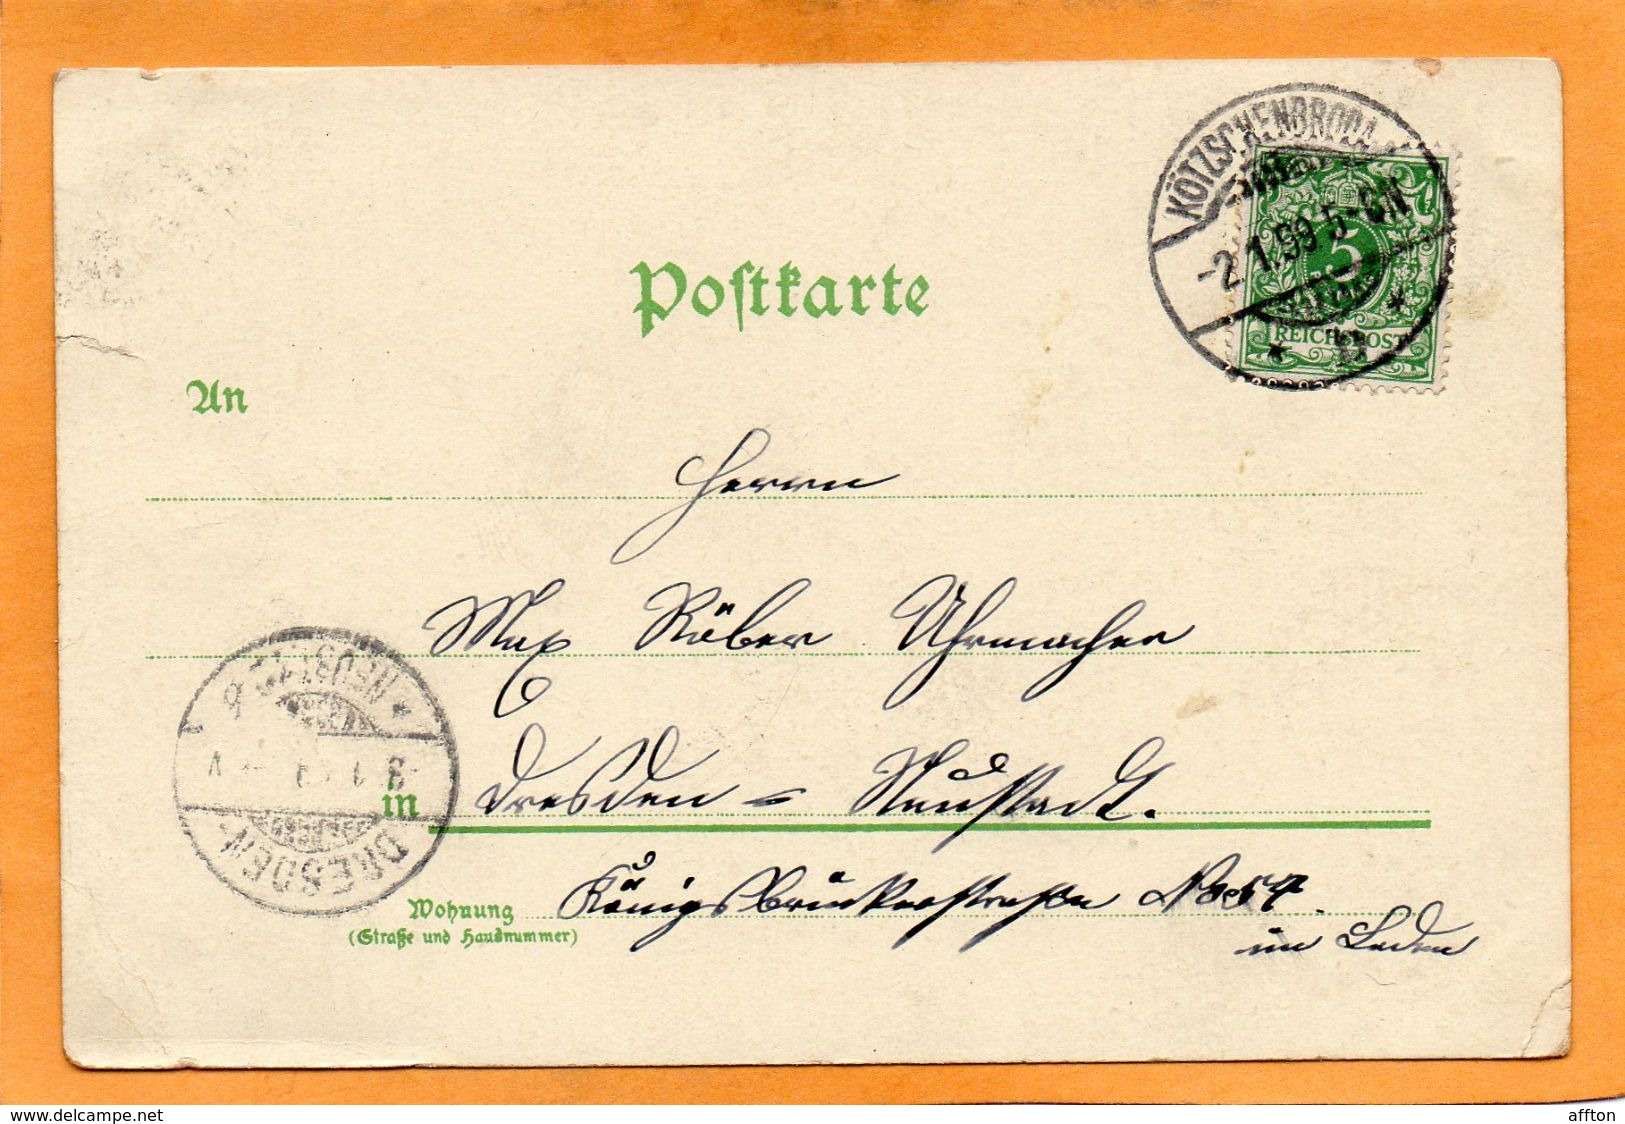 KÖTZSCHENBRODA
-2.1.99 5-6N
* b *
5
REICHSPOST
Postkarte
An
Herrn
Max Röber Uhrmacher
in Dresden = Neustadt.
Wohnung Königsbrückerstraße No 57
(Straße und Hausnummer)
im Laden
DRESDEN-
NEUST.
delcampe.net
affton